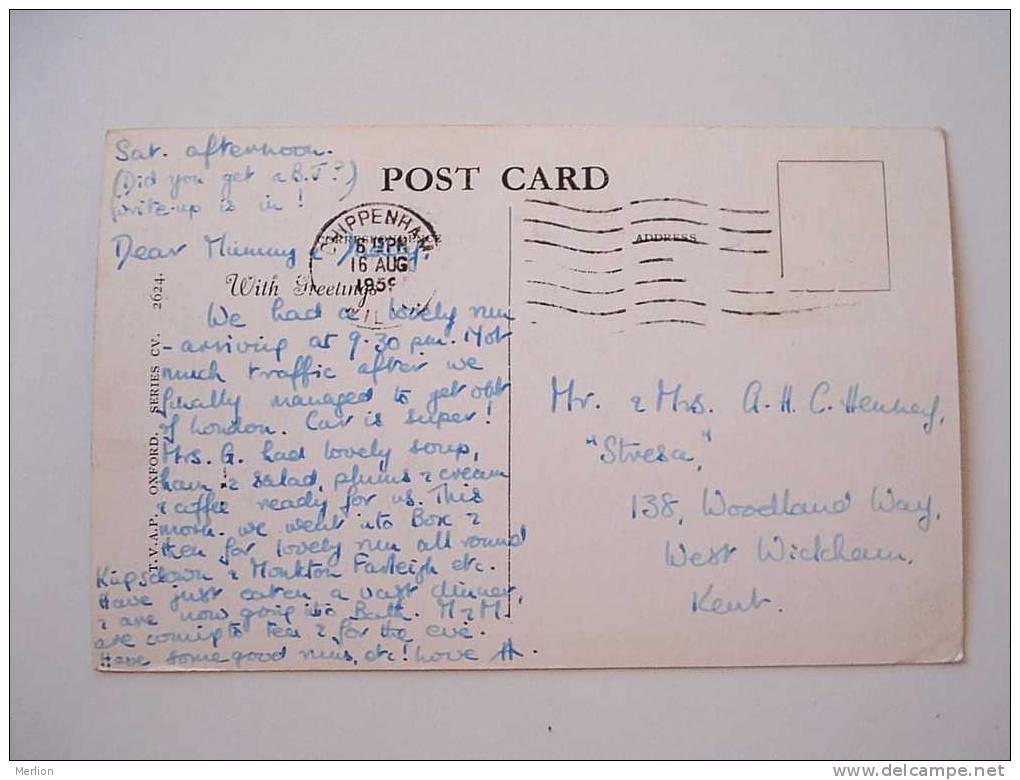 Sat. afternoon.
(Did you get a B.J?)
Write-up is in!
POST CARD
CORRESPONDENCE
ADDRESS
CHIPPENHAM
16 AUG
1959
With Greetings
Dear Mummy &
We had a lovely run
- arriving at 9.30 pm. Not
much traffic after we
finally managed to get out
of London. Car is super!
Mrs. G. had lovely soup,
ham & salad, plums & cream
& coffee ready for us. This
morn. we went into Box &
then for lovely run all round
Kingsdown & Monkton Farleigh etc.
Have just eaten a vast dinner,
& are now going into Bath. M & M.
are coming to tea & for the eve.
Have some good runs, etc! Love H.
T.V.A.P. OXFORD. SERIES CV. 2624.
Mr. & Mrs. A. H. C. Henney,
"Stresa,"
138, Woodland Way,
West Wickham,
Kent.
Merlion
www.delcampe.net